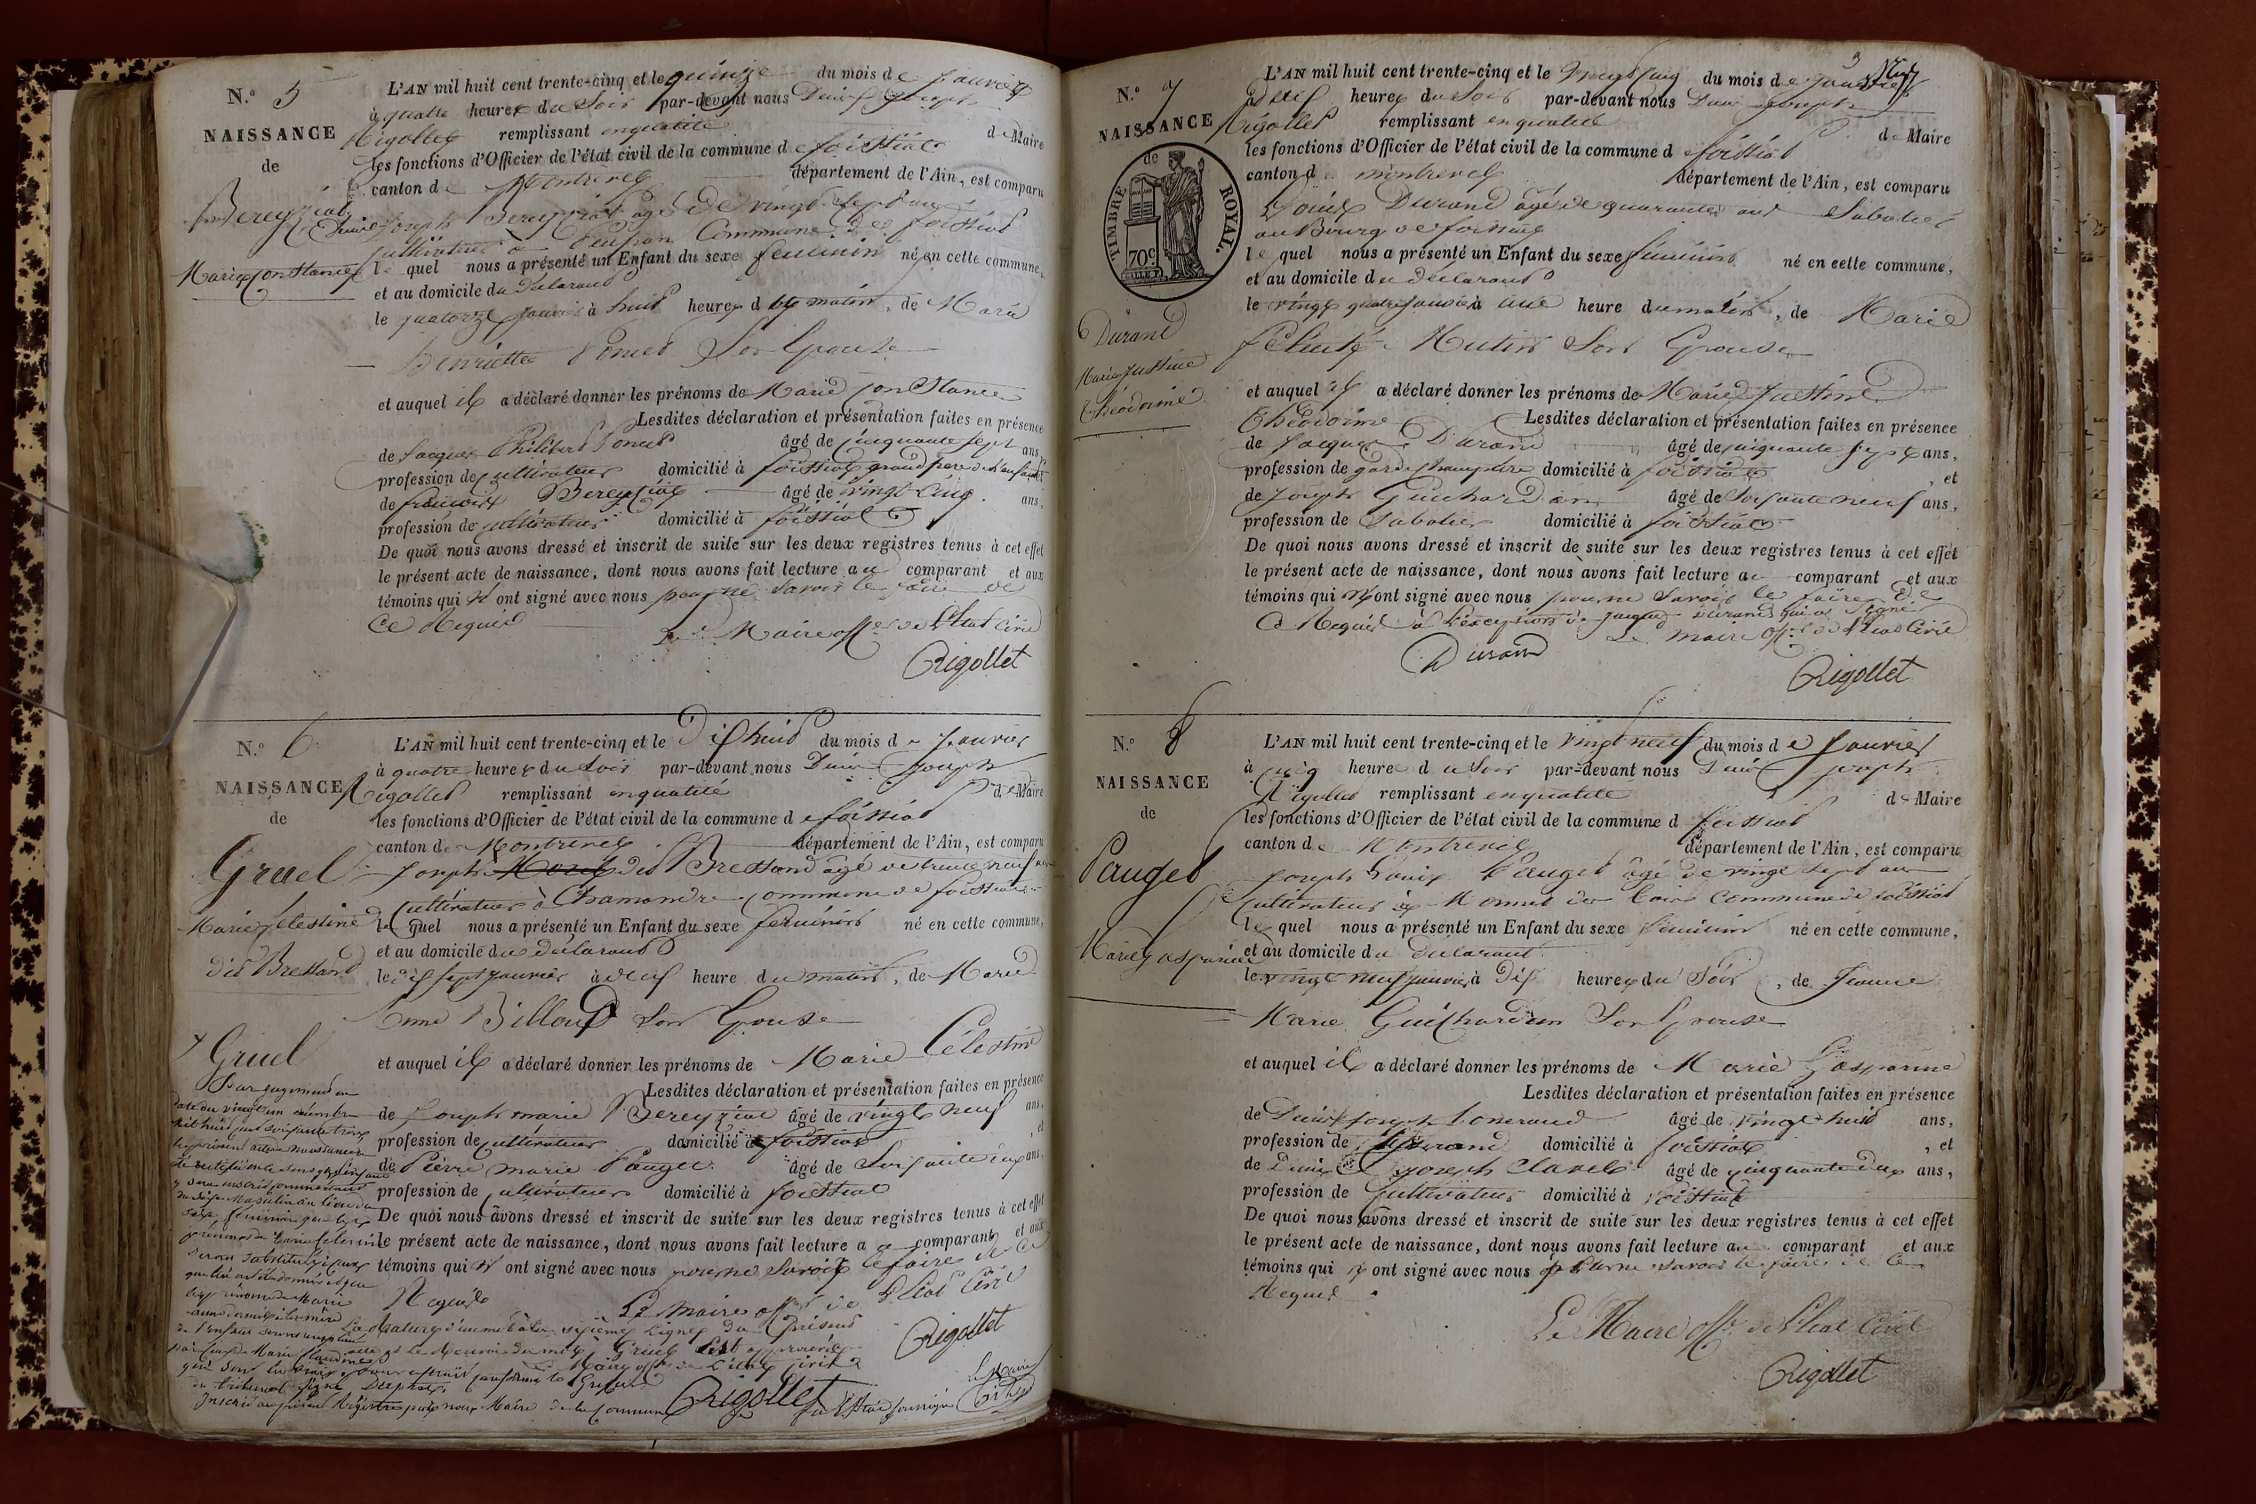 N.º 5
NAISSANCE
de
Bereyziat
Marie Constance
L'AN mil huit cent trente-cinq et le quinze du mois de Janvier
à quatre heures du Soir par-devant nous Denis Joseph
Rigollet remplissant en qualité de Maire
les fonctions d'Officier de l'état civil de la commune de foissiat
canton de Montrevel département de l'Ain, est comparu
Joseph Bereyziat agé de vingt Sept ans
cultivateur à Commune de foissiat
le quel nous a présenté un Enfant du sexe feminin né en cette commune,
et au domicile du Declarant
le quatorze janvier à huit heures du matin, de Marie
Henriette Son Epouse
et auquel il a déclaré donner les prénoms de Marie Constance
Lesdites déclaration et présentation faites en présence
de Jacques Philibert âgé de cinquante sept ans,
profession de cultivateur domicilié à foissiat grand pere de l'enfant
de françois Bereyziat âgé de vingt cinq ans,
profession de cultivateur domicilié à foissiat
De quoi nous avons dressé et inscrit de suite sur les deux registres tenus à cet effet
le présent acte de naissance, dont nous avons fait lecture au comparant et aux
témoins qui n'ont signé avec nous pour ne Savoir le faire de
ce Requis Le Maire off. de l'Etat Civil
Rigollet
N.º 6
NAISSANCE
de
Gruel
Marie Celestine
dit Bressand
L'AN mil huit cent trente-cinq et le Dix huit du mois de Janvier
à quatre heures du Soir par-devant nous Denis Joseph
Rigollet remplissant en qualité de Maire
les fonctions d'Officier de l'état civil de la commune de foissiat
canton de Montrevel département de l'Ain, est comparu
Joseph dit Bressand agé de trente neuf ans
Cultivateur à Chamandre Commune de foissiat
le quel nous a présenté un Enfant du sexe feminin né en cette commune,
et au domicile du declarant
le dix sept Janvier à heure du matin, de Marie
Anne Billoud Son Epouse
et auquel il a déclaré donner les prénoms de Marie Célestine
Lesdites déclaration et présentation faites en présence
de Joseph marie Bereyziat âgé de vingt neuf ans,
profession de cultivateur domicilié à foissiat, et
de Pierre marie Pauget âgé de Soixante deux ans,
profession de cultivateur domicilié à foissiat
De quoi nous avons dressé et inscrit de suite sur les deux registres tenus à cet effet
le présent acte de naissance, dont nous avons fait lecture au comparant et aux
témoins qui n'ont signé avec nous pour ne Savoir le faire de ce
Requis Le Maire off. de l'Etat Civil
Rigollet
La rature d'un mot à la sixième ligne du Présent
Gruel est approuvé
Le Maire off. de l'état civil
Rigollet
Gruel
Par jugement en
date du vingt un
mil huit cent soixante trois
le présent acte de naissance
du Sexe Masculin au lieu du
sexe feminin
prénoms de
seront substitués à ceux
les prénoms de Marie
du tribunal Signé
Inscrit au présent Registre par nous Maire de la Commune
de foissiat soussigné
Le Maire
N.º 7
NAISSANCE
de
TIMBRE ROYAL.
70c.
Durand
Marie Justine
Théodorine
3
L'AN mil huit cent trente-cinq et le vingt cinq du mois de Janvier
à heures du Soir par-devant nous Denis Joseph
Rigollet remplissant en qualité de Maire
les fonctions d'Officier de l'état civil de la commune de foissiat
canton de montrevel département de l'Ain, est comparu
Louis Durand âgé de quarante ans Sabotier
au Bourg de foissiat
le quel nous a présenté un Enfant du sexe féminin né en cette commune,
et au domicile du declarant
le vingt quatre Janvier à une heure du matin, de Marie
félicité Mutin Son Epouse
et auquel il a déclaré donner les prénoms de Marie Justine
Théodorine Lesdites déclaration et présentation faites en présence
de Jacques Durand âgé de cinquante sept ans,
profession de garde champêtre domicilié à foissiat, et
de Joseph Guichardan âgé de Soixante neuf ans,
profession de Sabotier domicilié à foissiat
De quoi nous avons dressé et inscrit de suite sur les deux registres tenus à cet effet
le présent acte de naissance, dont nous avons fait lecture au comparant et aux
témoins qui n'ont signé avec nous pour ne Savoir le faire de
ce Requis à l'exception de Jacques Durand qui a Signé
Le maire off. de l'Etat Civil
Durand
Rigollet
N.º 8
NAISSANCE
de
Pauget
Marie Gasparine
L'AN mil huit cent trente-cinq et le vingt neuf du mois de Janvier
à cinq heure du Soir par-devant nous Denis Joseph
Rigollet remplissant en qualité de Maire
les fonctions d'Officier de l'état civil de la commune de foissiat
canton de Montrevel département de l'Ain, est comparu
Joseph Louis Pauget âgé de vingt sept ans
cultivateur à commune de foissiat
le quel nous a présenté un Enfant du sexe féminin né en cette commune,
et au domicile du Declarant
le vingt neuf janvier à Dix heures du Soir, de Jeanne
Marie Guichardan Son Epouse
et auquel il a déclaré donner les prénoms de Marie Gasparine
Lesdites déclaration et présentation faites en présence
de Denis Joseph âgé de vingt huit ans,
profession de domicilié à foissiat, et
de Denis Joseph Clavel âgé de cinquante deux ans,
profession de Cultivateur domicilié à foissiat
De quoi nous avons dressé et inscrit de suite sur les deux registres tenus à cet effet
le présent acte de naissance, dont nous avons fait lecture au comparant et aux
témoins qui n'ont signé avec nous pour ne savoir le faire de ce
Requis
Le Maire off. de l'Etat Civil
Rigollet